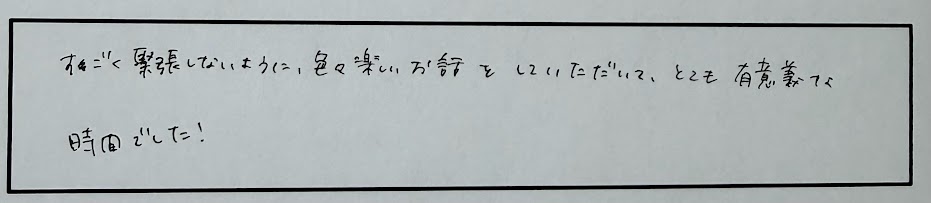 すごく緊張しないように、色々楽しいお話をしていただいて、とても有意義な
時間でした!